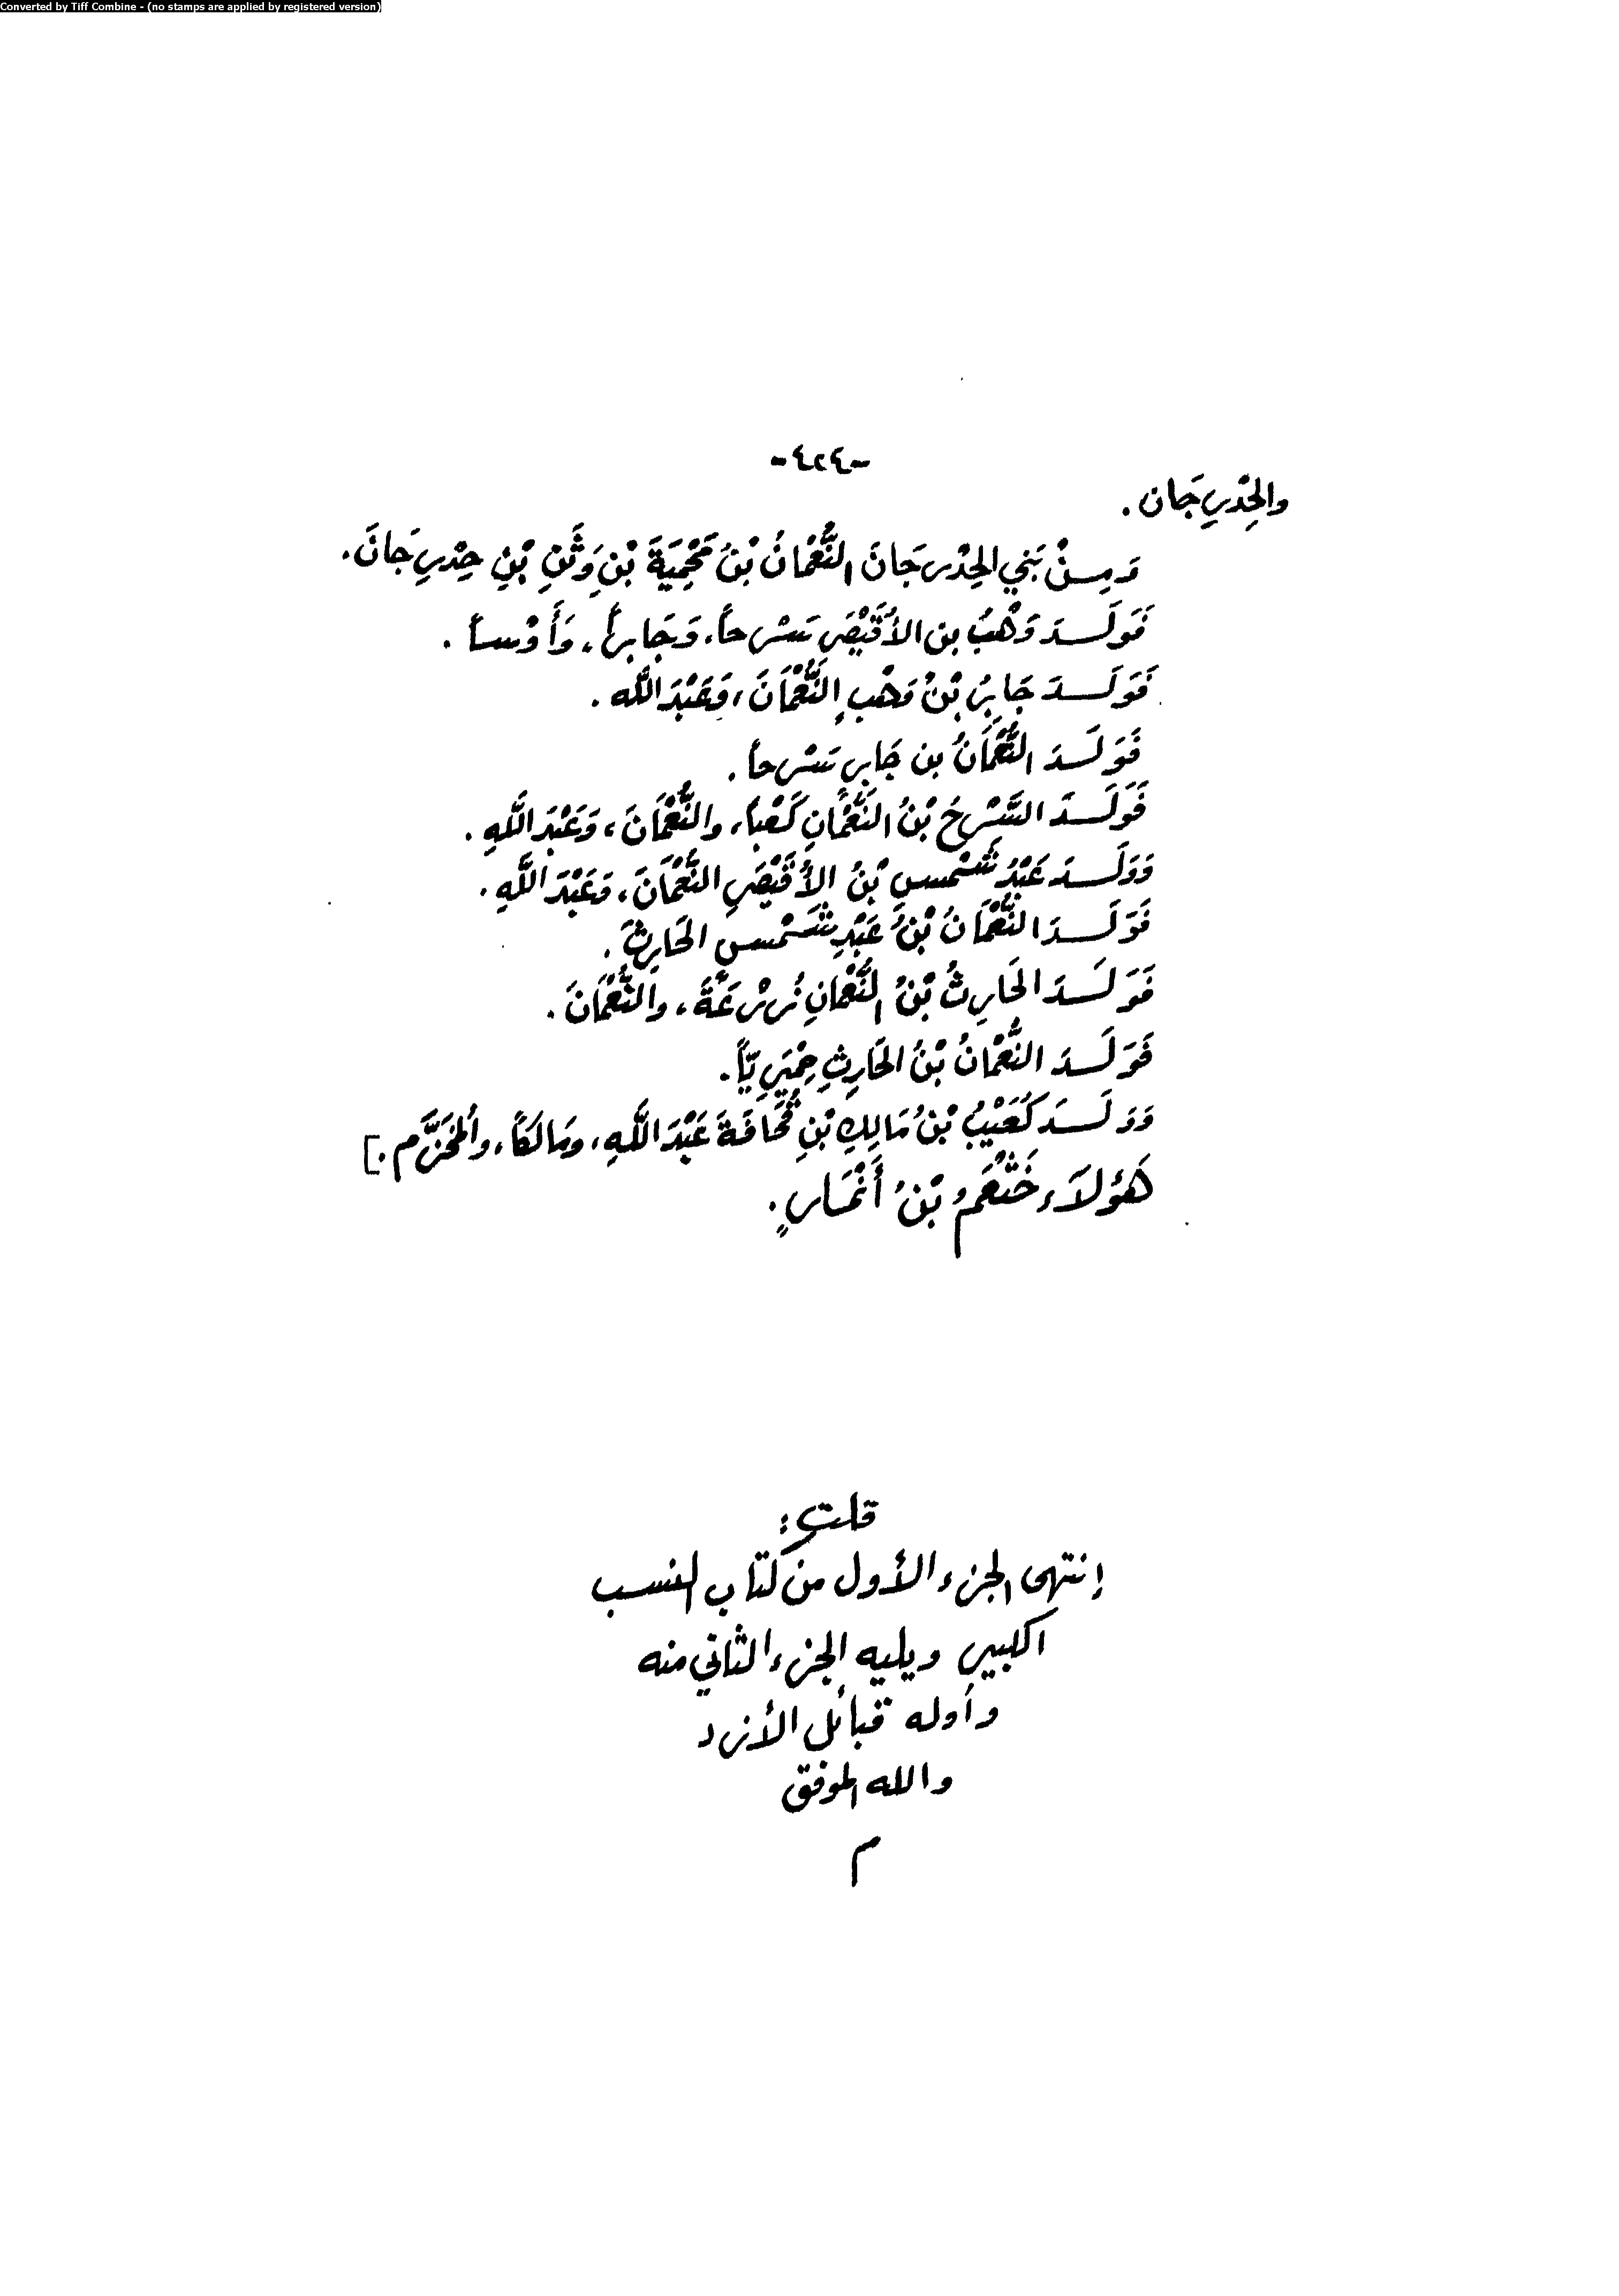 Converted by Tiff Combine - (no stamps are applied by registered version)
-٤٢٤-
والحِدْرِجَان .
وَمِنْ بَنِي الحِدْرِجَانَ النُّعْمَانُ بْنُ مَحْمِيَةَ بْنِ وَثَنِ بْنِ حِدْرِجَانَ.
فَوَلَدَ وَهْبُ بن الأُقَيْصِرِ سَرْحاً، وَجَابِراً، وَأَوْساً .
فَوَلَدَ جَابِرُ بْنُ وَهْبٍ النُّعْمَانَ، وَعَبْدَ اللّه .
فَوَلَدَ النُّعْمَانُ بن جَابِرٍ سَرْحاً .
فَوَلَدَ السَّرْحُ بْنُ النُّعْمَانِ كَعْباً، والنُّعْمَانَ، وَعَبْدَ اللَّهِ .
وَوَلَدَ عَبْدُ شَمْسِ بْنُ الأُقَيْصِرِ النُّعْمَانَ، وَعَبْدَ اللَّهِ .
فَوَلَدَ النُّعْمَانُ بْنُ عَبْدِ شَمْسٍ الحَارِثَ .
فَوَلَدَ الحَارِثُ بْنُ النُّعْمَانِ زُرْعَةَ، والنُّعْمَانَ .
فَوَلَدَ النُّعْمَانُ بْنُ الحَارِثِ حِمْيَرِيّاً .
وَوَلَدَ كُعَيْبُ بْنُ مَالِكِ بْنِ قُحَافَةَ عَبْدَ اللَّهِ، ومَالكاً، والمُخَزَّم .]
هَؤُلَاءِ خَثْعَمُ بْنُ أَنْمَارٍ .
قلت :
إنتهى الجزء الأول من كتاب النسب
الكبير ويليه الجزء الثاني منه
وأوله قبائل الأزد
والله الموفق
م